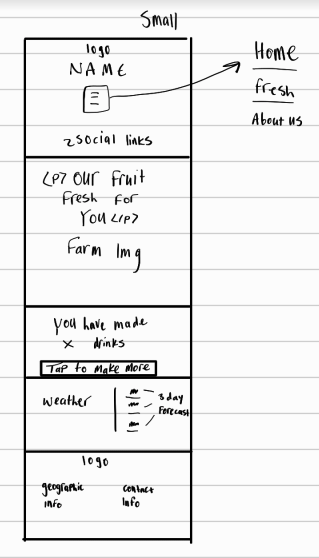 Small
logo
NAME
Home
fresh
About us
2 social links
<p> our fruit
fresh for
you </p>
Farm Img
you have made
x drinks
Tap to make more
weather
3 day
Forecast
logo
geographic
info
contact
info